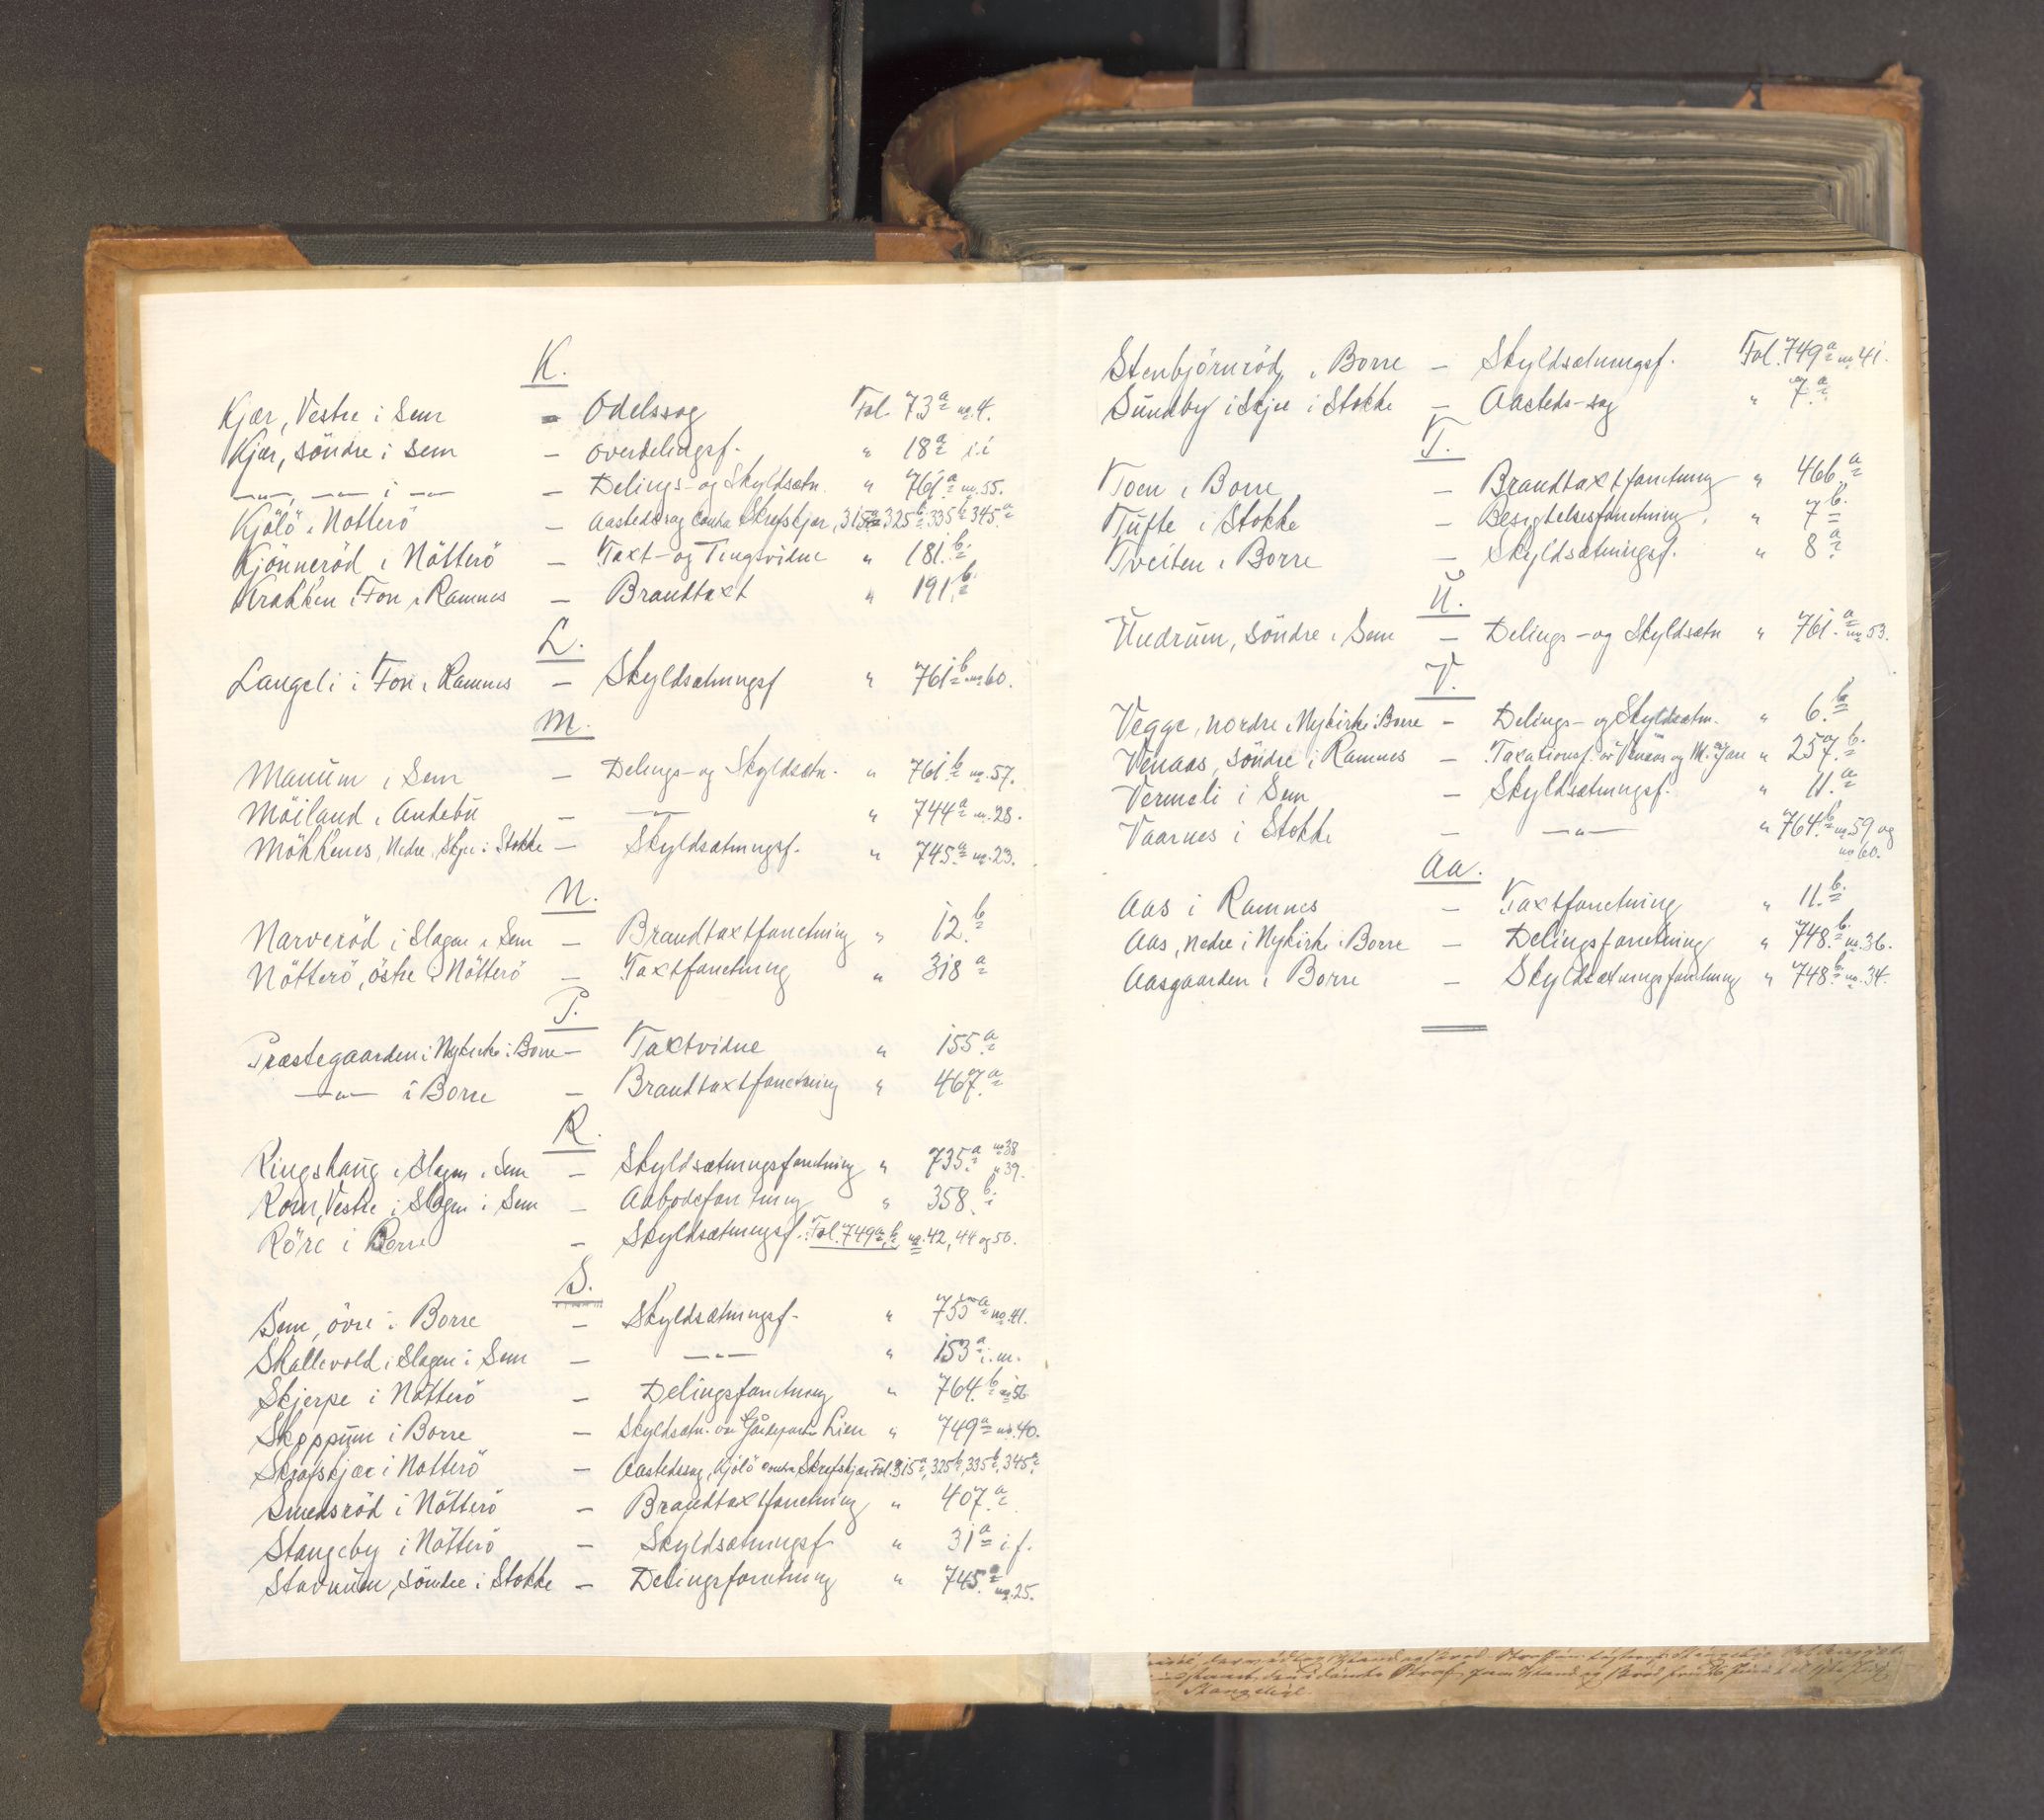 K.
Kjær, Vestre i Sem – Odelssag Fol. 73a no. 4.
Kjær, söndre i Sem – Overdelingsf. " 18a i.i
—"—, —"— i —"— – Delings- og Skyldsætn. " 761a no. 55.
Kjölö i Nötterö – Aastedssag contra Skrefskjær, 315a 325b 335b 345a
Kjönneröd i Nötterö – Taxt- og Tingsvidne " 181.b
Krakken i Fon i Ramnes – Brandtaxt " 191.b
L.
Langeli i Fon i Ramnes – Skyldsætningsf " 761b no 60.
M.
Manum i Sem – Delings- og Skyldsætn. " 761b no. 57.
Möiland i Andebu – —"— " 744a no. 28.
Mökkenes, Nedre i Skje i Stokke – Skyldsætningsf. " 745.a no. 23.
N.
Narveröd i Slagen i Sem – Brandtaxtforretning " 12.b
Nötterö, östre i Nötterö – Taxtforretning " 318 a
P.
Præstegaarden i Nykirke i Borre – Taxtvidne " 155.a
—"— i Borre – Brandtaxtforretning " 467.a
R.
Ringshaug i Slagen i Sem – Skyldsætningsforretning " 735.a no 38 " 39.
Rom, Vestre i Slagen i Sem – Aabodsforretning " 358.b
Röre i Borre – Skyldsætningsf. Fol. 749a, b no. 42, 44 og 50.
S.
Sem, övre i Borre – Skyldsætningsf. " 755a no. 41.
Skallevold i Slagen i Sem – —"— " 153a i.m.
Skjerpe i Nötterö – Delingsforretning " 764.b no 56
Skoppum i Borre – Skyldsætn. over Lien " 749a no. 40.
Skrefskjær i Nötterö – Aastedssag, Kjölö contra Skrefskjær Fol. 315a, 325b, 335b, 345a
Smedsröd i Nötterö – Brandtaxtforretning " 407.a
Stangeby i Nötterö – Skyldsætningsf " 31a i.f.
Stavnum, söndre i Stokke – Delingsforretning " 745.a no. 25.
Stenbjörnröd i Borre – Skyldsætningsf. Fol. 749a no 41.
Sundby i Skje i Stokke – Aasteds-sag " 7a
T.
Toen i Borre – Brandtaxtforretning " 466.a
Tufte i Stokke – Besigtelsesforretning " 7b
Tveiten i Borre – Skyldsætningsf. " 8a
U.
Undrum, söndre i Sem – Delings- og Skyldsætn " 761.a no 53.
V.
Vegge, nordre i Nykirke i Borre – Delings- og Skyldsætn. " 6.b
Venaas, söndre i Ramnes – Taxationsf. Venaas og " 257.b
Vermeli i Sem – Skyldsætningsf. " 11.a
Vaarnes i Stokke – —"— " 764.b no 59 og
no 60.
Aa.
Aas i Ramnes – Taxtforretning " 11.b
Aas, nedre i Nykirke i Borre – Delingsforretning " 748.b no. 36.
Aasgaarden i Borre – Skyldsætningsforretning " 748.b no. 34.